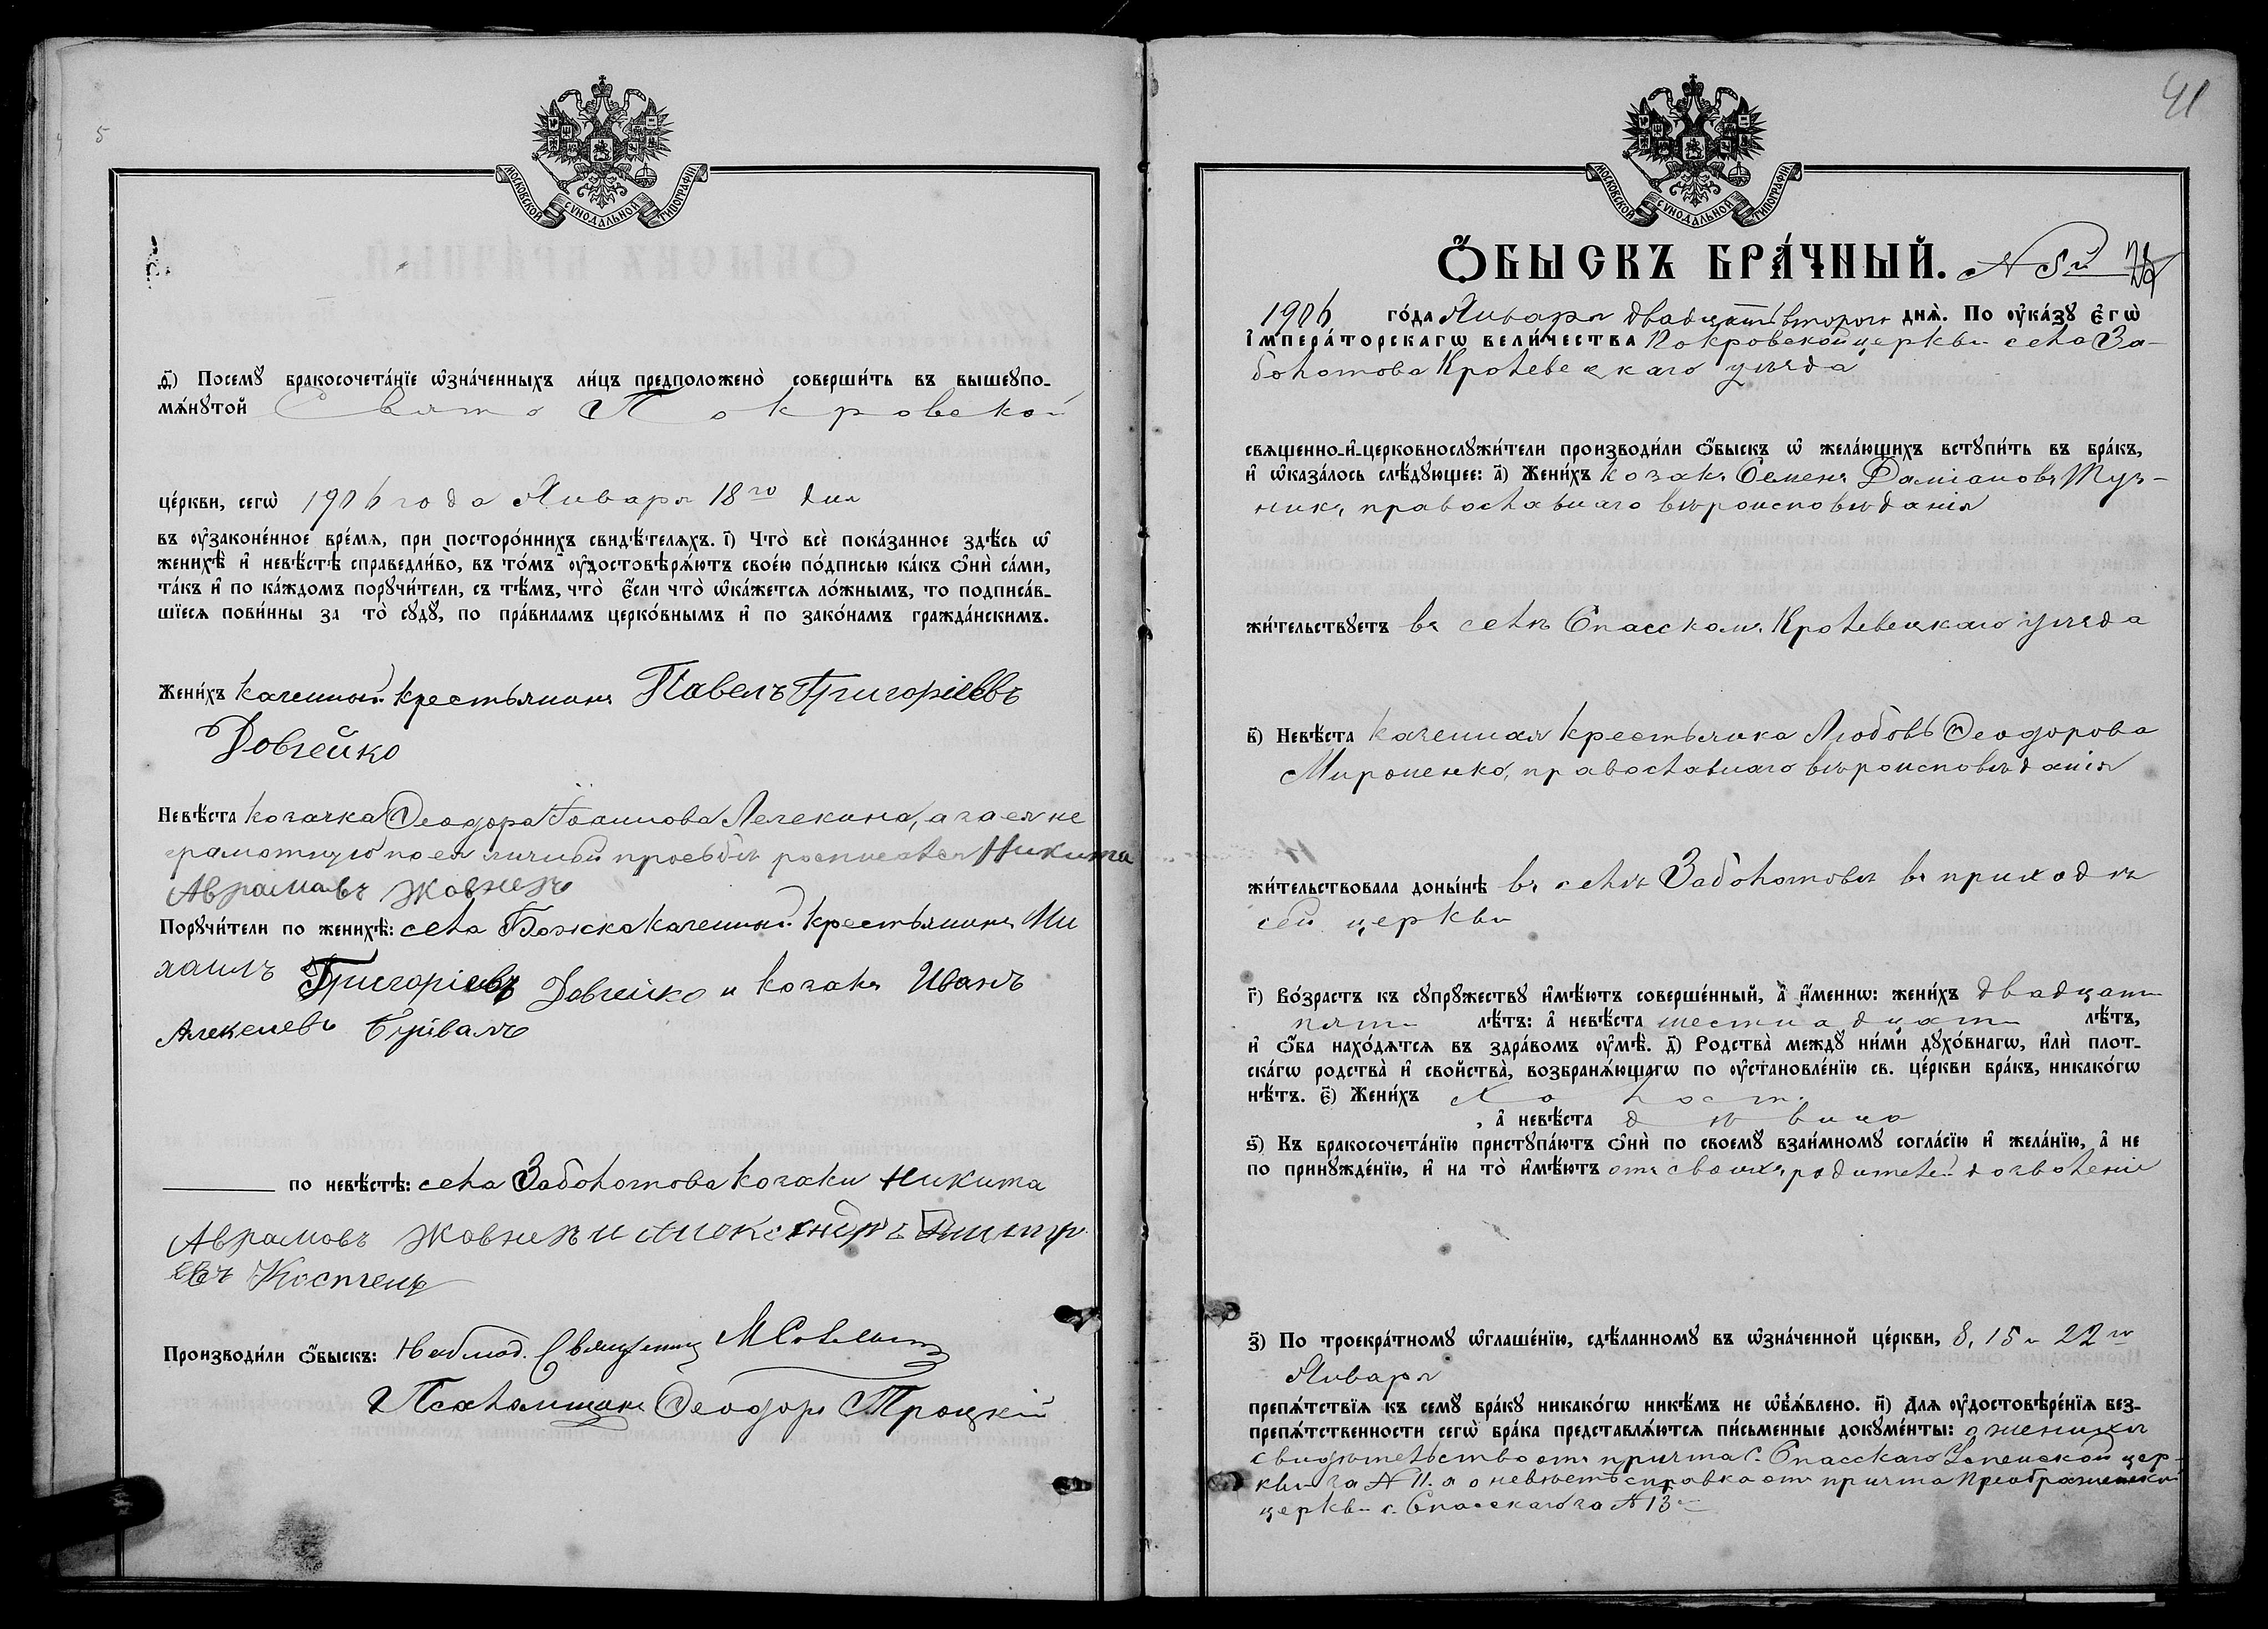 5
МОСКОВСКОЙ СѴНОДАЛЬНОЙ ТИПОГРАФІИ
Посемꙋ̀ бракосочета́нїе ѡ҆зна́ченныхъ ли́цъ предположено̀ соверши́ть въ вышеупо-
мѧ́нꙋтой Свято Покровской
це́ркви, сегѡ̀ 1906 года Января 18го дня
въ ᲂу҆законе́нное вре́мѧ, при посторо́ннихъ свидѣ́телѧхъ. і҃) Что̀ всѐ пока́занное здѣ́сь ѡ҆
женихѣ̀ и҆ невѣ́стѣ справедли́во, въ то́мъ ᲂу҆достовѣрѧ́ютъ свое́ю по́дписью ка́къ ѻ҆нѝ са́ми,
та́къ и҆ по ка́ждомъ порꙋчи́тели, съ тѣ́мъ, что̀ є҆́сли что̀ ѡ҆ка́жетсѧ ло́жнымъ, то подписа́в-
шїесѧ пови́нны за то̀ сꙋдꙋ̀, по пра́виламъ церко́внымъ и҆ по зако́намъ гражда́нскимъ.
Жени́хъ казенный крестьянинъ Павелъ Григоріевъ
Довгейко
Невѣ́ста козачка Ѳеодора Іоаннова Лелекина, а за ея не
грамотную по ея личной просьбѣ росписался Никита
Аврамовъ Жовнеръ
Порꙋчи́тели по женихѣ̀: села Божка казенный крестьянинъ Ми
хаилъ Григоріевъ Довгейко и козакъ Иванъ
Алексеевъ
по невѣ́стѣ: села Заболотова козаки Никита
Аврамовъ Жовнеръ и Александръ Дмитр
евъ Костенц
Производи́ли ѻ҆́быскъ: Наблюд. Священникъ
Псаломщикъ Ѳеодоръ Троцкій
41
МОСКОВСКОЙ СѴНОДАЛЬНОЙ ТИПОГРАФІИ
Ѻ҆́БЫСКЪ БРА́ЧНЫЙ. N 5й
1906 го́да Января двадцать второго днѧ̀. По ᲂу҆ка́зꙋ Є҆гѡ̀
І҆мпера́торскагѡ вели́чества Покровской церкви села За-
болотова Кролевецкаго уѣзда
свѧщенно-и҆-церковнослꙋжи́тели производи́ли ѻ҆́быскъ ѡ҆ жела́ющихъ встꙋпи́ть въ бра́къ,
и҆ ѡ҆каза́лось слѣ́дꙋющее: а҃) Жени́хъ козакъ Семенъ Даміановъ Туз-
никъ, православнаго вѣроисповѣданія
жи́тельствꙋетъ въ селѣ Спасскомъ Кролевецкаго уѣзда
в҃) Невѣ́ста казенная крестьянка Любовь Ѳеодорова
Мироненко, православнаго вѣроисповѣданія
жи́тельствовала доны́нѣ въ селѣ Заболотовѣ въ приходѣ
сей церкви
г҃) Во́зрастъ къ сꙋпрꙋ́жествꙋ и҆мѣ́ютъ соверше́нный, а҆ и҆́меннѡ: жени́хъ двадцати
пяти лѣ́тъ: а҆ невѣ́ста шестнадцати лѣ́тъ,
и҆ ѻ҆́ба нахо́дѧтсѧ въ здра́вомъ ᲂу҆мѣ̀. д҃) Родства̀ междꙋ̀ ни́ми дꙋхо́внагѡ, и҆лѝ плот-
ска́гѡ родства̀ и҆ сво́йства, возбранѧ́ющагѡ по ᲂу҆становле́нїю св. це́ркви бра́къ, никако́гѡ
нѣ́тъ. є҃) Жени́хъ холостъ
, а҆ невѣ́ста дѣвица
ѕ҃) Къ бракосочета́нїю пристꙋпа́ютъ ѻ҆нѝ по своемꙋ̀ взаи́мномꙋ согла́сїю и҆ жела́нїю, а҆ не
по принꙋжде́нїю, и҆ на то̀ и҆мѣ́ютъ отъ своихъ родителей дозволеніе
з҃) По троекра́тномꙋ ѡ҆глаше́нїю, сдѣ́ланномꙋ въ ѡ҆зна́ченной це́ркви, 8, 15 и 22го
Января
препѧ́тствїѧ къ семꙋ̀ бра́кꙋ никако́гѡ никѣ́мъ не ѡ҆б̾ѧ́влено. и҃) Длѧ ᲂу҆достовѣре́нїѧ без-
препѧ́тственности сегѡ̀ бра́ка представлѧ́ютсѧ пи́сьменные докꙋме́нты: о женихѣ
свидѣтельство отъ причта с. Спасскаго Успенской цер-
кви за N 11. а о невѣстѣ справка отъ причта Преображенской
церкви с. Спасскаго за N 13